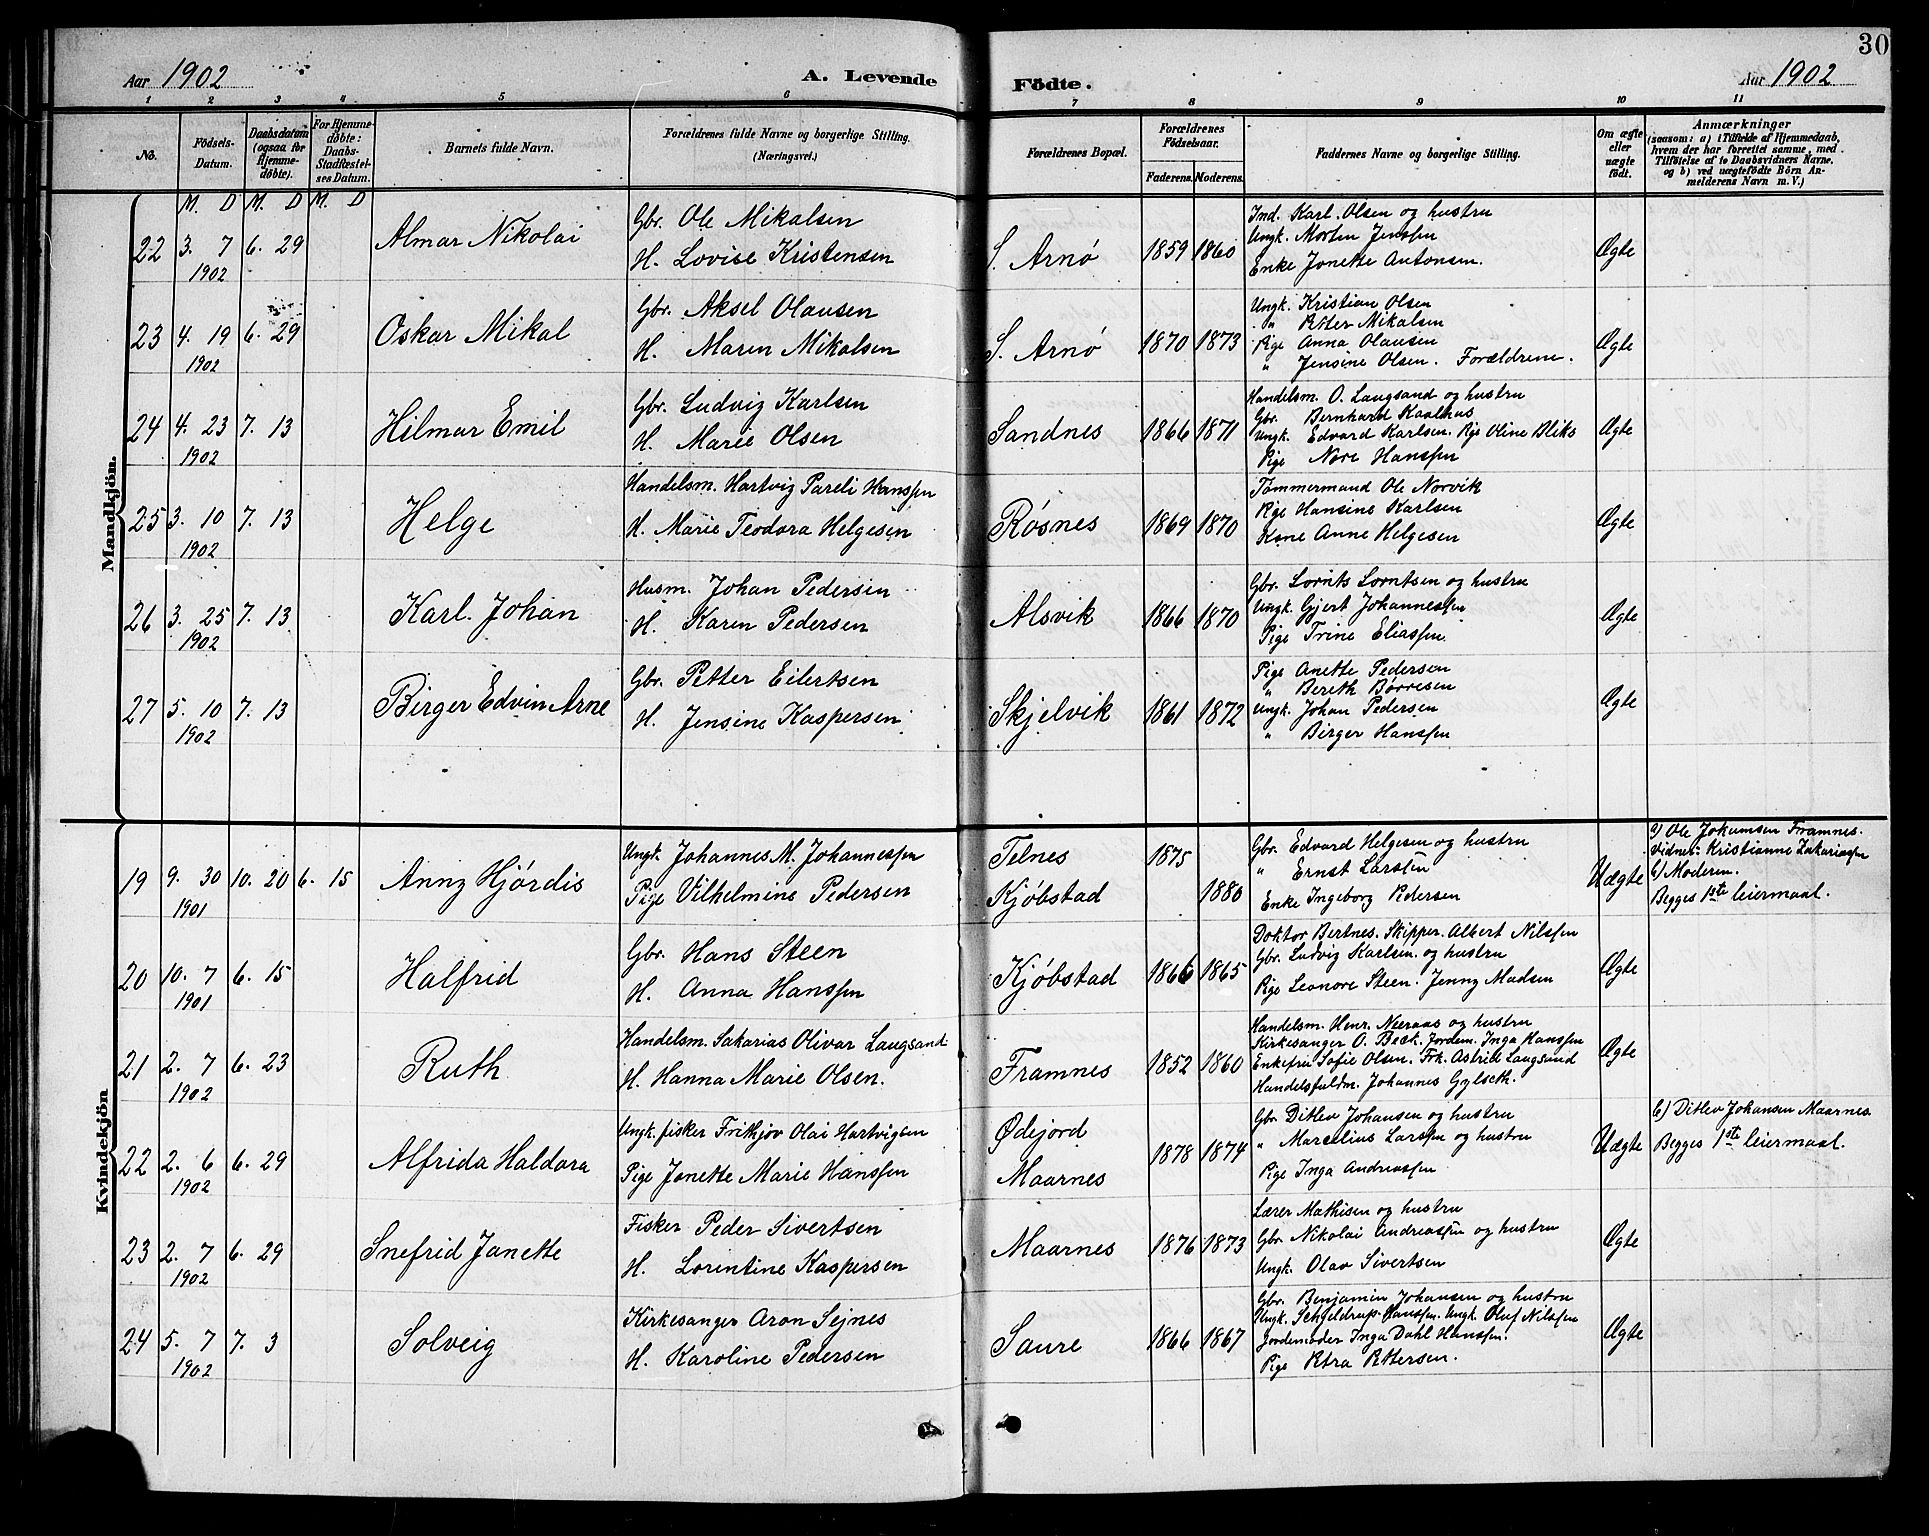 30
Aar 1902 A. Levende Födte. Aar 1902
1 2 3 4 5 6 7 8 9 10 11
No.
Födsels-
Datum.
Daabsdatum
(ogsaa for
Hjemme-
döbte).
For Hjemme-
döbte:
Daabs-
Stadfæstel-
ses Datum.
Barnets fulde Navn.
Forældrenes fulde Navne og borgerlige Stilling.
(Næringsvei.)
Forældrenes Bopæl.
Forældrenes
Födselsaar.
Faderens. Moderens.
Faddernes Navne og borgerlige Stilling.
Om ægte
eller
uægte
födt.
Anmærkninger
(saasom: a) i Tilfælde af Hjemmedaab,
hvem der har forrettet samme, med
Tilföielse af to Daabsvidners Navne.
og b) ved uægtefödte Börn An-
melderens Navn m. V.)
M. D M. D M. D
Mandkjön.
22 3. 7 1902 6. 29 Almar Nikolai
Gbr. Ole Mikalsen
H. Lovise Kristensen
S. Arnø 1859 1860
Ind. Karl Olsen og hustru
Ungk. Morten Jenssen
Enke Jonette Antonsen.
Ægte
23 4. 19 1902 6. 29 Oskar Mikal
Gbr. Aksel Olausen
H. Maren Mikalsen
S. Arnø 1870 1873
Ungk. Kristian Olsen
" Peter Mikalsen
Pige Anna Olausen
" Jensine Olsen. Forældrene.
Ægte
24 4. 23 1902 7. 13 Hilmar Emil
Gbr. Ludvig Karlsen
H. Marie Olsen
Sandnes 1866 1871
Handelsm. O. Laugsand og hustru
Gbr. Bernhard Kaalhus
Ungk. Edvard Karlsen. Pige Oline Bliks
Pige Nore Hanssen
Ægte
25 3. 10 1902 7. 13 Helge
Handelsm. Hartvig Pareli Hanssen
H. Marie Teodora Helgesen
Røsnes 1869 1870
Tømmermand Ole Norvik
Pige Hansine Karlsen
Kone Anne Helgesen
Ægte
26 3. 25 1902 7. 13 Karl Johan
Husm. Johan Pedersen
H. Karen Pedersen
Alsvik 1866 1870
Gbr. Lornts Lorntsen og hustru
Ungk. Gjert Johannessen
Pige Trine Eliassen
Ægte
27 5. 10 1902 7. 13 Birger Edvin Arne
Gbr. Petter Eilertsen
H. Jensine Kaspersen
Skjelvik 1861 1872
Pige Anette Pedersen
" Bereth Børresen
Ungk. Johan Pedersen
" Birger Hanssen
Ægte
Kvindekjön
19 9. 30 1901 10. 20 6. 15 Anny Hjørdis
Ungk. Johannes M. Johannessen
Pige Vilhelmine Pedersen
Telnes 1875
Kjøbstad 1880
Gbr. Edvard Helgesen og hustru
" Ernst Larsen
Enke Ingeborg Pedersen
Uægte
a) Ole Jokumsen Framnes.
Vidner: Kristianne Zakariassen
b) Moderen.
Begges 1ste leiermaal.
20 10. 7 1901 6. 15 Halfrid
Gbr. Hans Steen
H. Anna Hanssen
Kjøbstad 1866 1865
Doktor Bertnes. Skipper Albert Nilssen
Gbr. Ludvig Karlsen og hustru
Pige Leonore Steen. Jenny Madsen
Ægte
21 2. 7 1902 6. 23 Ruth
Handelsm. Sakarias Olivar Laugsand
H. Hanna Marie Olsen.
Framnes 1852 1860
Handelsm. Henr. Næraas og hustru
Kirkesanger O. Beck. Jordem. Inga Hanssen
Enkefru Sofie Olsen. Frk. Astrid Laugsand
Handelsfuldm. Johannes Gylseth.
Ægte
22 2. 6 1902 6. 29 Alfrida Haldora
Ungk. fisker Frithjov Olai Hartvigsen
Pige Jonette Marie Hanssen
Ødejord
Maarnes 1878 1874
Gbr. Ditlev Johansen og hustru
" Marcelius Larssen og hustru
Pige Inga Andreassen
Uægte
b) Ditlev Johansen Maarnes
Begges 1ste leiermaal.
23 2. 7 1902 6. 29 Snefrid Janette
Fisker Peder Sivertsen
H. Lorentine Kaspersen
Maarnes 1876 1873
Lærer Mathisen og hustru
Gbr. Nikolai Andreassen og hustru
Ungk. Olav Sivertsen
Ægte
24 5. 7 1902 7. 3 Solveig
Kirkesanger Aron Sejnes
H. Karoline Pedersen
Saure 1866 1867
Gbr. Benjamin Johansen og hustru
Ungk. Schjeldrup Hanssen. Ungk. Oluf Nilssen
Jordemoder Inga Dahl Hanssen.
Pige Petra Pettersen.
Ægte